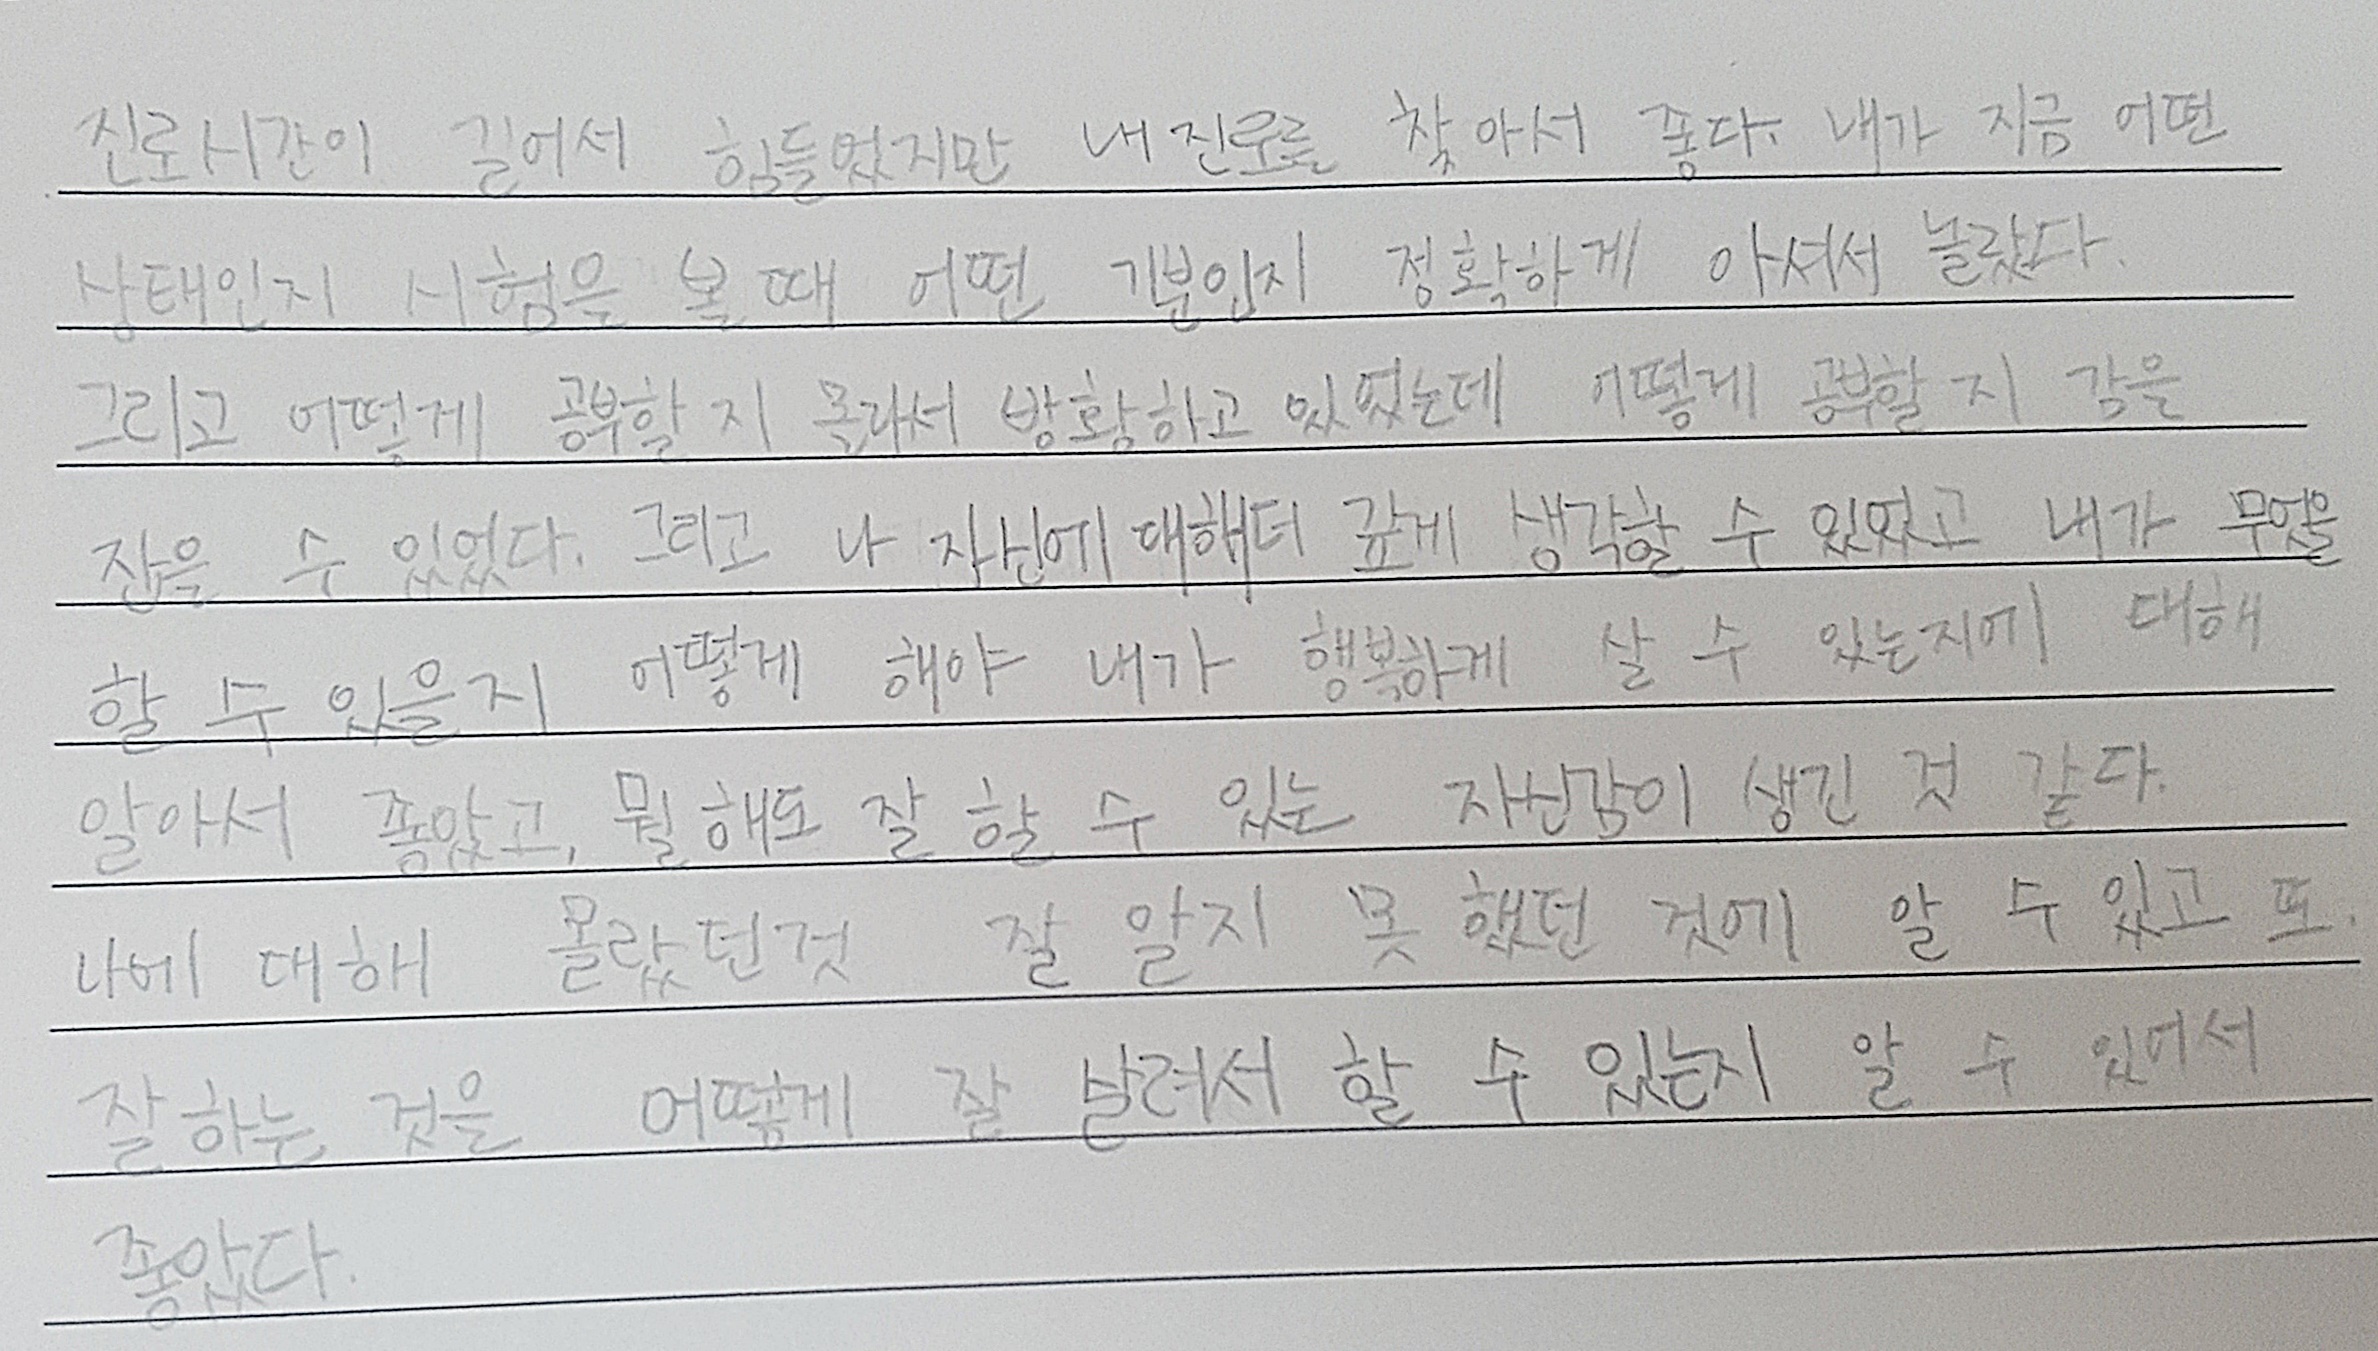 진로시간이 길어서 힘들었지만 내 진로를 찾아서 좋다. 내가 지금 어떤
상태인지 시험을 볼 때 어떤 기분인지 정확하게 아셔서 놀랐다.
그리고 어떻게 공부할지 몰라서 방황하고 있었는데 어떻게 공부할지 감을
잡을 수 있었다. 그리고 나 자신에 대해 더 깊게 생각할 수 있었고 내가 무엇을
할 수 있을지 어떻게 해야 내가 행복하게 살 수 있는지에 대해
알아서 좋았고, 뭘 해도 잘 할 수 있는 자신감이 생긴 것 같다.
나에 대해 몰랐던것 잘 알지 못했던 것에 알 수 있고 또.
잘하는 것을 어떻게 잘 살려서 할 수 있는지 알 수 있어서
좋았다.